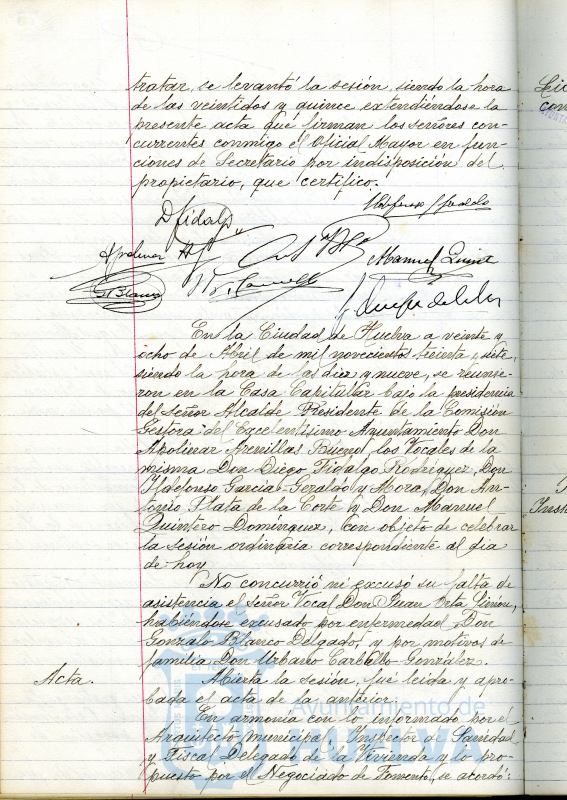 tratar, se levantó la sesión, siendo la hora
de las veintidos y quince extendiéndose la
presente acta que firman los señores con-
currentes conmigo el Oficial Mayor en fun-
ciones de Secretario por indisposición del
propietario, que certifico.
D Fidalgo
Manuel Quint
G Blanco
En la Ciudad de Huelva a veinte y
ocho de Abril de mil novecientos treinta y siete,
siendo la hora de las diez y nueve, se reunie-
ron en la Casa Capitular bajo la presidencia
del Señor Alcalde Presidente de la Comisión
Gestora del Excelentísimo Ayuntamiento Don
Apolinar Arenillas Bueno, los Vocales de la
misma Don Diego Fidalgo Rodríguez, Don
Ildefonso García-Geraldo y Mora, Don An-
tonio Plata de la Corte y Don Manuel
Quintero Domínguez, con objeto de celebrar
la sesión ordinaria correspondiente al dia
de hoy
No concurrió ni excusó su falta de
asistencia el señor Vocal Don Juan
habiéndose excusado por enfermedad, Don
Gonzalo Blanco Delgado, y por motivos de
familia Don Urbano Carballo González.
Acta. Abierta la sesión, fué leida y apro-
bada el acta de la anterior.
En armonía con lo informado por el
Arquitecto municipal, Inspector de Sanidad
y Fiscal Delegado de la Vivienda y lo pro-
puesto por el Negociado de Fomento, se acordó:
Ayuntamiento de
HUELVA